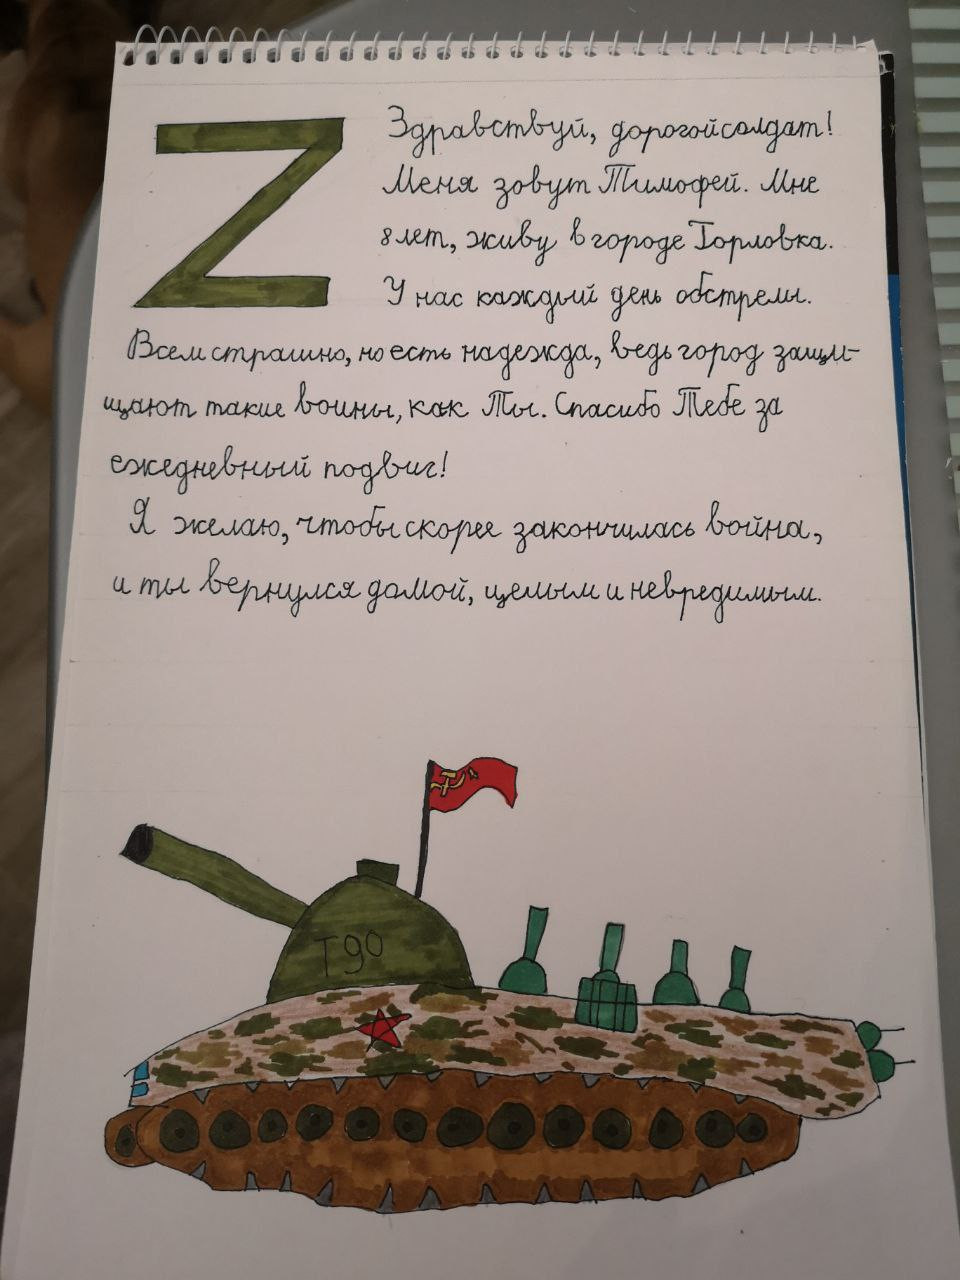 Z
Здравствуй, дорогой солдат!
Меня зовут Тимофей. Мне
8 лет, живу в городе Горловка.
У нас каждый день обстрелы.
Всем страшно, но есть надежда, ведь город защи-
щают такие воины, как Ты. Спасибо Тебе за
ежедневный подвиг!
Я желаю, чтобы скорее закончилась война,
и ты вернулся домой, целым и невредимым.
Т90